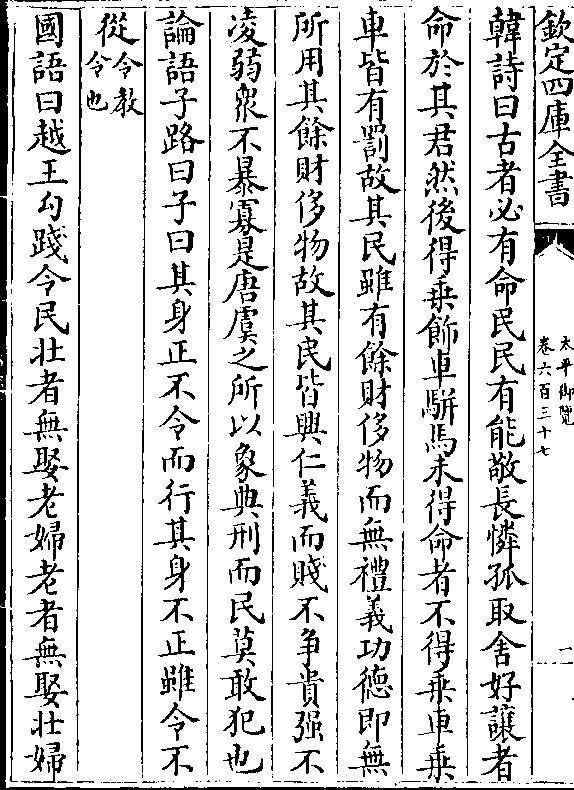 欽定四庫全書
太平御覽
卷六百三十七
二
韓詩曰古者必有命民民有能敬長憐孤取舍好讓者
命於其君然後得乗飾車駢馬未得命者不得乗車乗
車皆有罰故其民雖有餘財侈物而無禮義功德即無
所用其餘財侈物故其民皆興仁義而賤不争貴强不
凌弱衆不暴寡是唐虞之所以象典刑而民莫敢犯也
論語子路曰子曰其身正不令而行其身不正雖令不
從令教
令也
國語曰越王勾踐令民壯者無娶老婦老者無娶壯婦